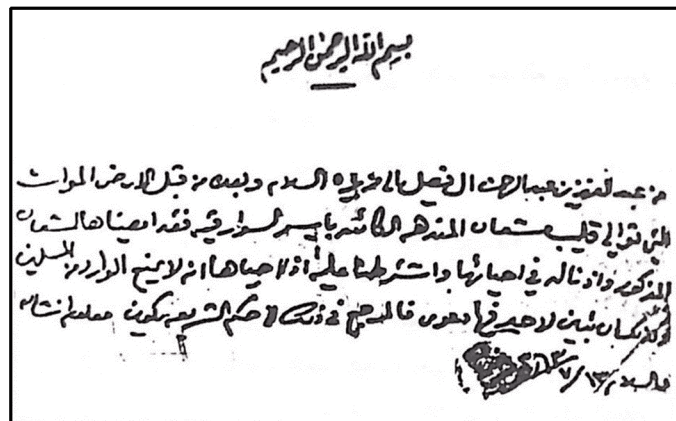 بسم الله الرحمن الرحيم
من عبد العزيز بن عبد الرحمن ال فيصل الى من يراه السلام وبعد من قبل الارض الموات
التي توالي قليب شعان المندهه الكائنه باسم السوارقيه فقد امضيناها لشعان
المذكور واذنا له في احيائها واشترطنا عليه اذا احياها انه لا يمنع الوارد من المسلمين
وان تبين لاحد فيها دعوى فالمرجع في ذلك حكم الشريعه يكون معلوم انشاله
والسلام